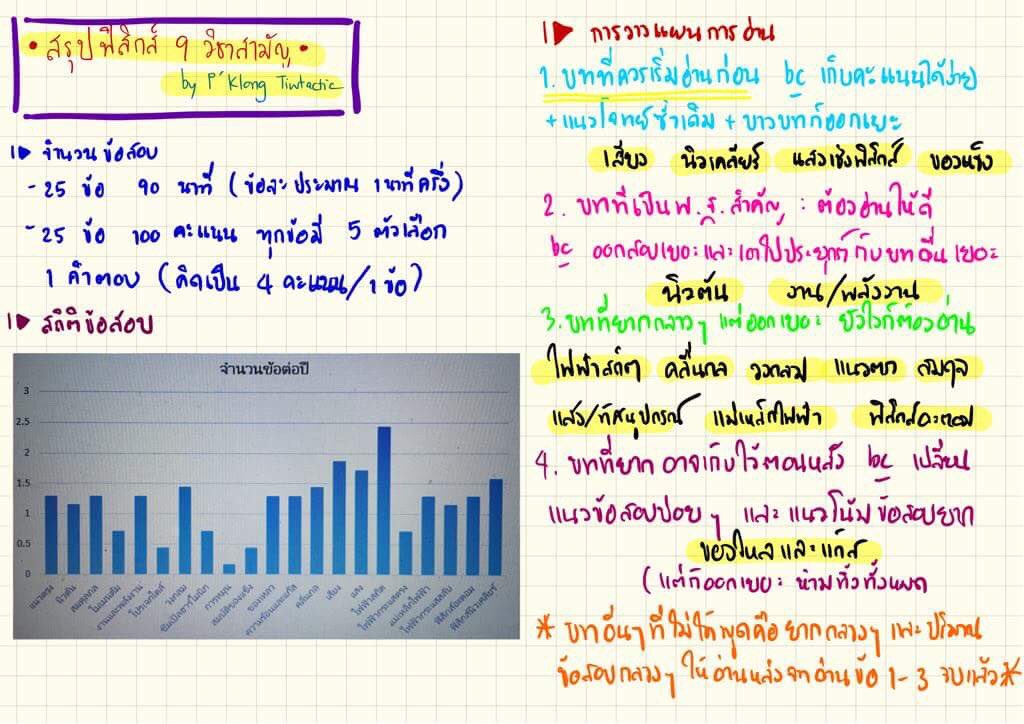 • สรุปฟิสิกส์ 9 วิชาสามัญ •
by P' Klong Tiwtactic
จำนวนข้อสอบ
- 25 ข้อ 90 นาที (ข้อละประมาณ 1 นาทีครึ่ง)
- 25 ข้อ 100 คะแนน ทุกข้อมี 5 ตัวเลือก
1 คำตอบ (คิดเป็น 4 คะแนน/1ข้อ)
สถิติข้อสอบ
จำนวนข้อต่อปี
3
2.5
2
1.5
1
0.5
0
แนวตรง
นิวตัน
สมดุลกล
โมเมนตัม
งานและพลังงาน
โปรเจกไตล์
วงกลม
ซิมเปิลฮาร์โมนิก
การหมุน
สมบัติของแข็ง
ของเหลว
ความร้อนและแก๊ส
คลื่นกล
เสียง
แสง
ไฟฟ้าสถิต
ไฟฟ้ากระแสตรง
แม่เหล็กไฟฟ้า
ไฟฟ้ากระแสสลับ
ฟิสิกส์อะตอม
ฟิสิกส์นิวเคลียร์
การวางแผนการอ่าน
1. บทที่ควรเริ่มอ่านก่อน bc เก็บคะแนนได้ง่าย
+ แนวโจทย์ซ้ำเดิม + บางบทก็ออกเยอะ
เสียง นิวเคลียร์ แสงเชิงฟิสิกส์ ของแข็ง
2. บทที่เป็น พ.ฐ. สำคัญ : ต้องอ่านให้ดี
bc ออกสอบเยอะและเอาไปประยุกต์กับบทอื่นเยอะ
นิวตัน งาน/พลังงาน
3. บทที่ยากกลางๆ แต่ออกเยอะ ยังไงก็ต้องอ่าน
ไฟฟ้าสถิต คลื่นกล วงกลม แนวตรง สมดุล
แสง/ทัศนอุปกรณ์ แม่เหล็กไฟฟ้า ฟิสิกส์อะตอม
4. บทที่ยาก อาจเก็บไว้ตอนหลัง bc เปลี่ยน
แนวข้อสอบบ่อยๆ และแนวโน้มข้อสอบยาก
ของไหลและแก๊ส
(แต่ก็ออกเยอะ ห้ามทิ้งทั้งหมด
* บทอื่นๆ ที่ไม่ได้พูดคือยากกลางๆ และปริมาณ
ข้อสอบกลางๆ ให้อ่านหลังจากอ่านข้อ 1-3 จบแล้ว *